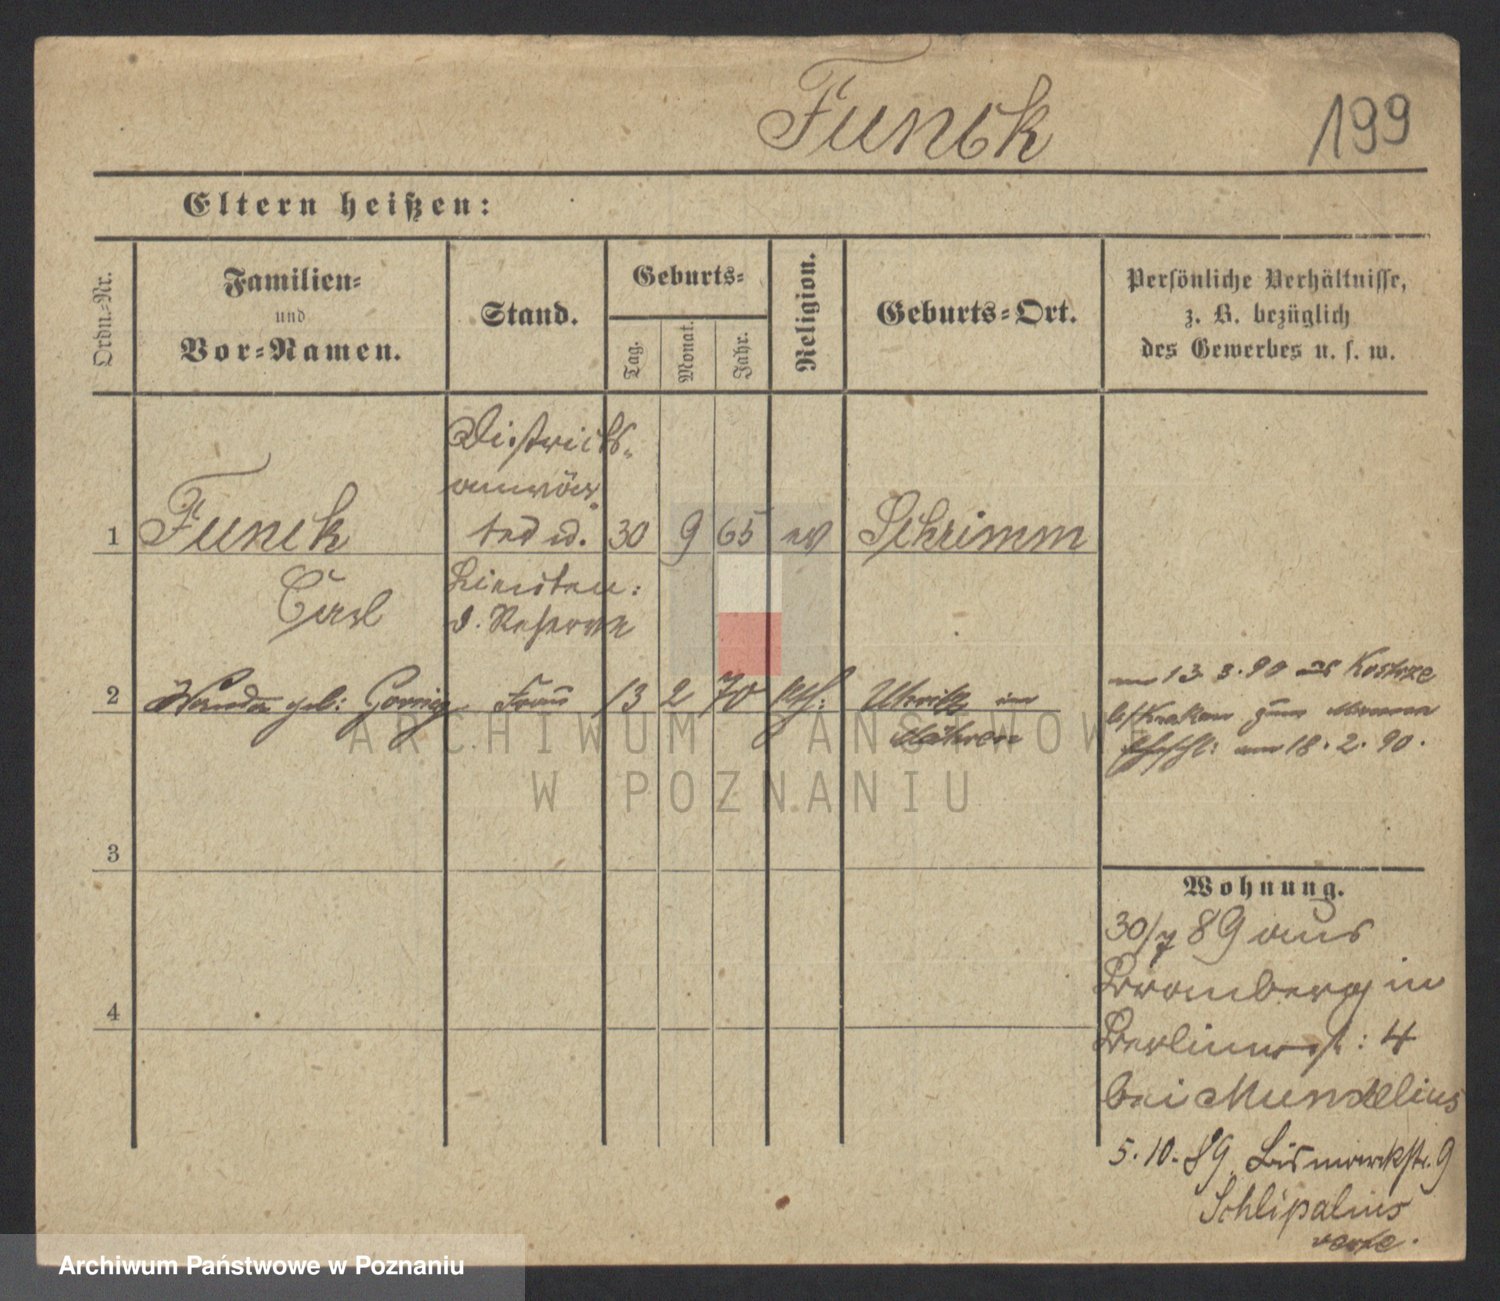 Funck
199
Eltern heißen:
Ordn.-Nr.
Familien-
und
Vor-Namen.
Stand.
Geburts-
Tag.
Monat.
Jahr.
Religion.
Geburts-Ort.
Persönliche Verhältnisse,
z. B. bezüglich
des Gewerbes u. s. w.
Districts-
anwär-
1 Funck ted u. 30 9 65 ev Schrimm
Carl Lieuten:
d. Reserve
2 Wanda geb: Frau 13 2 70 kth: in
Mähren
am 13. 3. 90 aus
zum Manne
am 18. 2. 90.
3
4
Wohnung.
30/7 89 aus
Bromberg in
Berlinerst: 4
bei Mundelius
5. 10. 89 Bismarckstr. 9
Schlipalius
ARCHIWUM PAŃSTWOWE
W POZNANIU
Archiwum Państwowe w Poznaniu